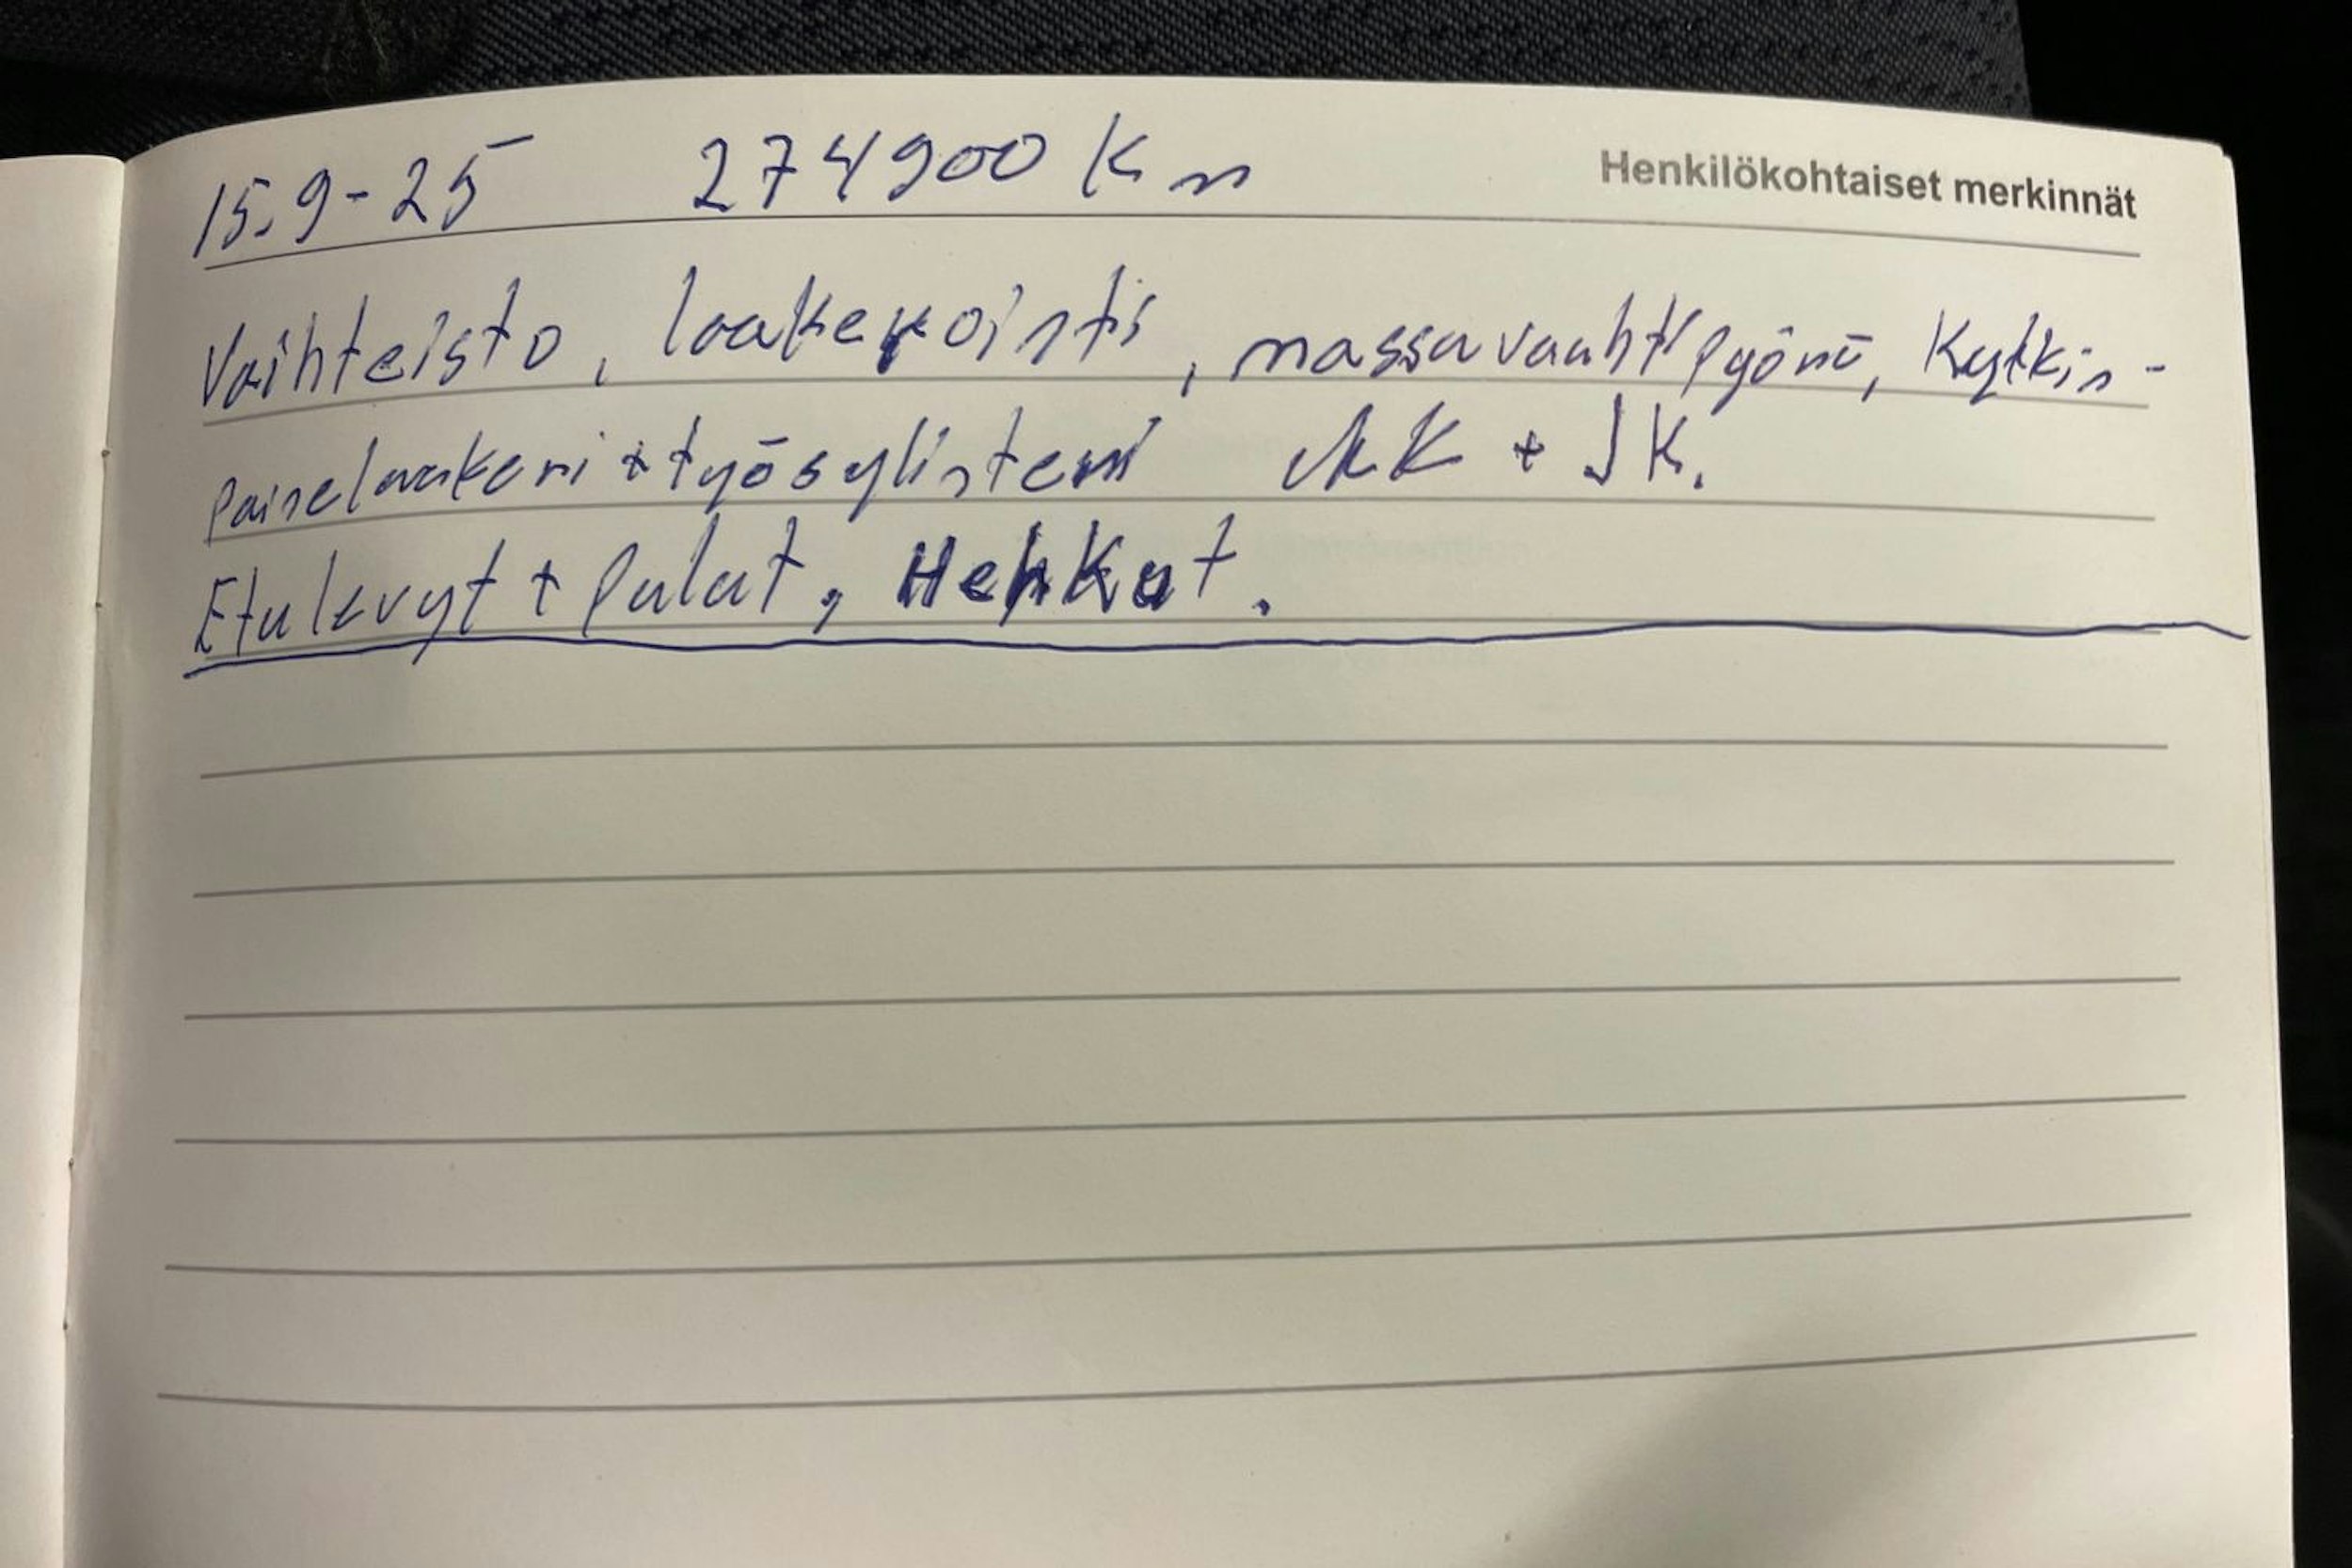 15.9-25 274900 Km
Henkilökohtaiset merkinnät
Vaihteisto, laakerointi, massavauhtipyörä, Kytkin-
painelaakeri + työsylinteri MK + JK.
Etulevyt + Palat, Hehkut.